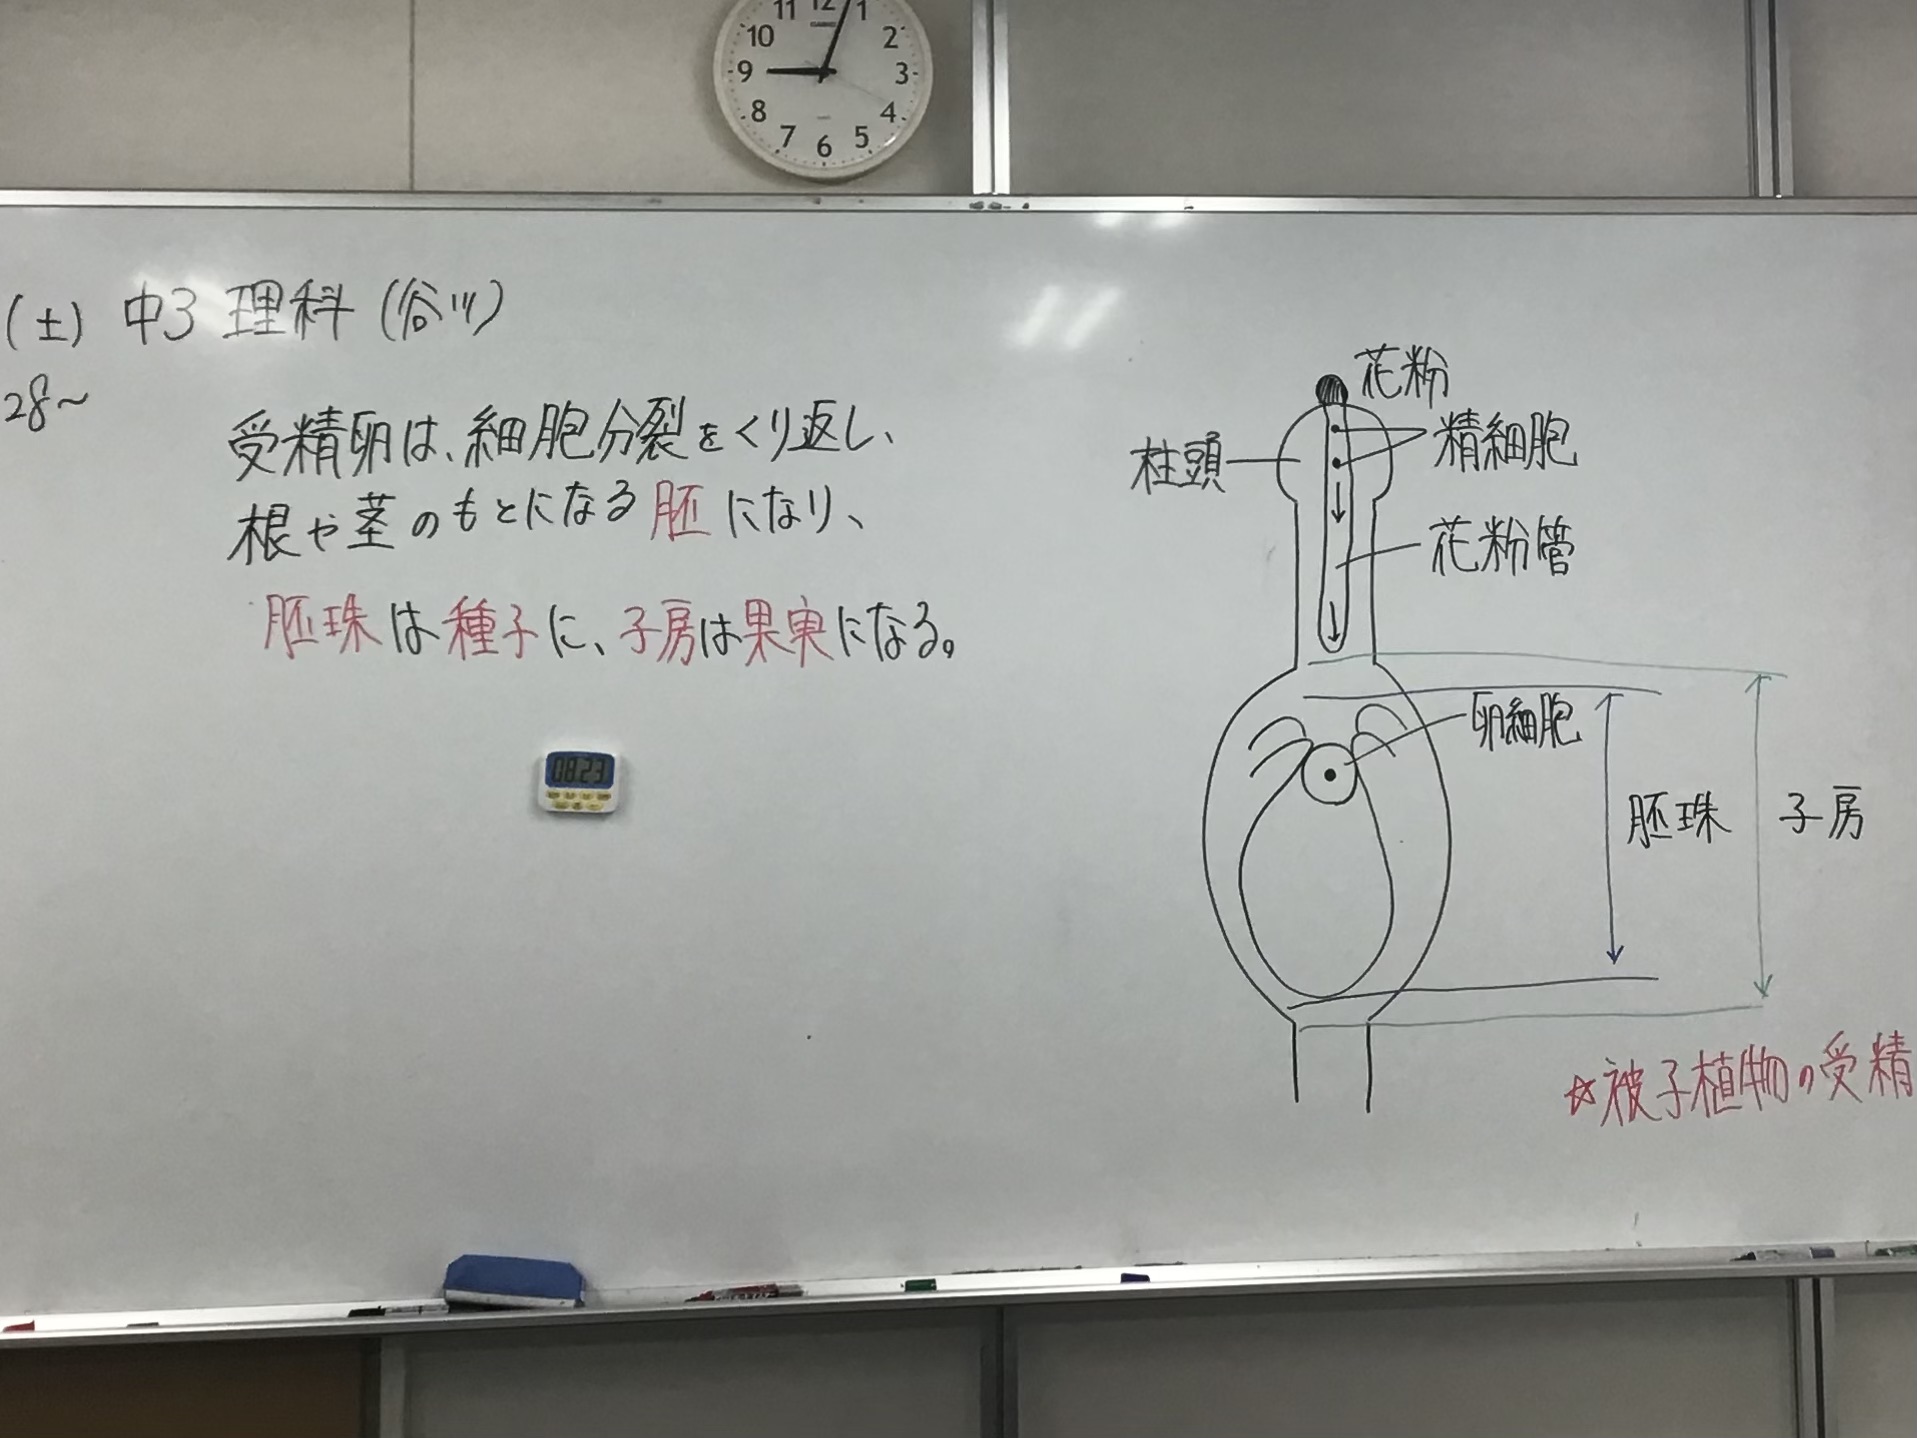 11 12 1
10 2
9 3
8 4
7 6 5
(土) 中3 理科 (谷川)
28~
受精卵は、細胞分裂をくり返し、
根や茎のもとになる胚になり、
胚珠は種子に、子房は果実になる。
08:23
花粉
柱頭
精細胞
花粉管
卵細胞
胚珠
子房
☆被子植物の受精